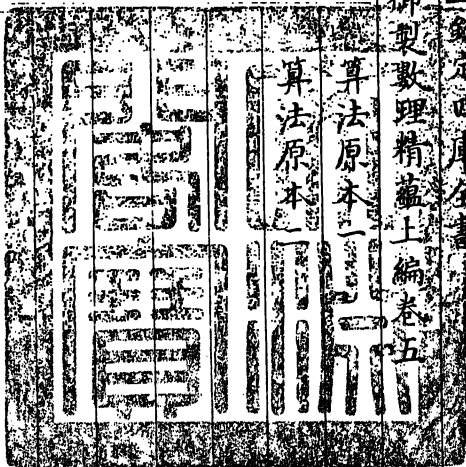 欽定四庫全書
御製數理精蘊上編卷五
算法原本一
算法原本二